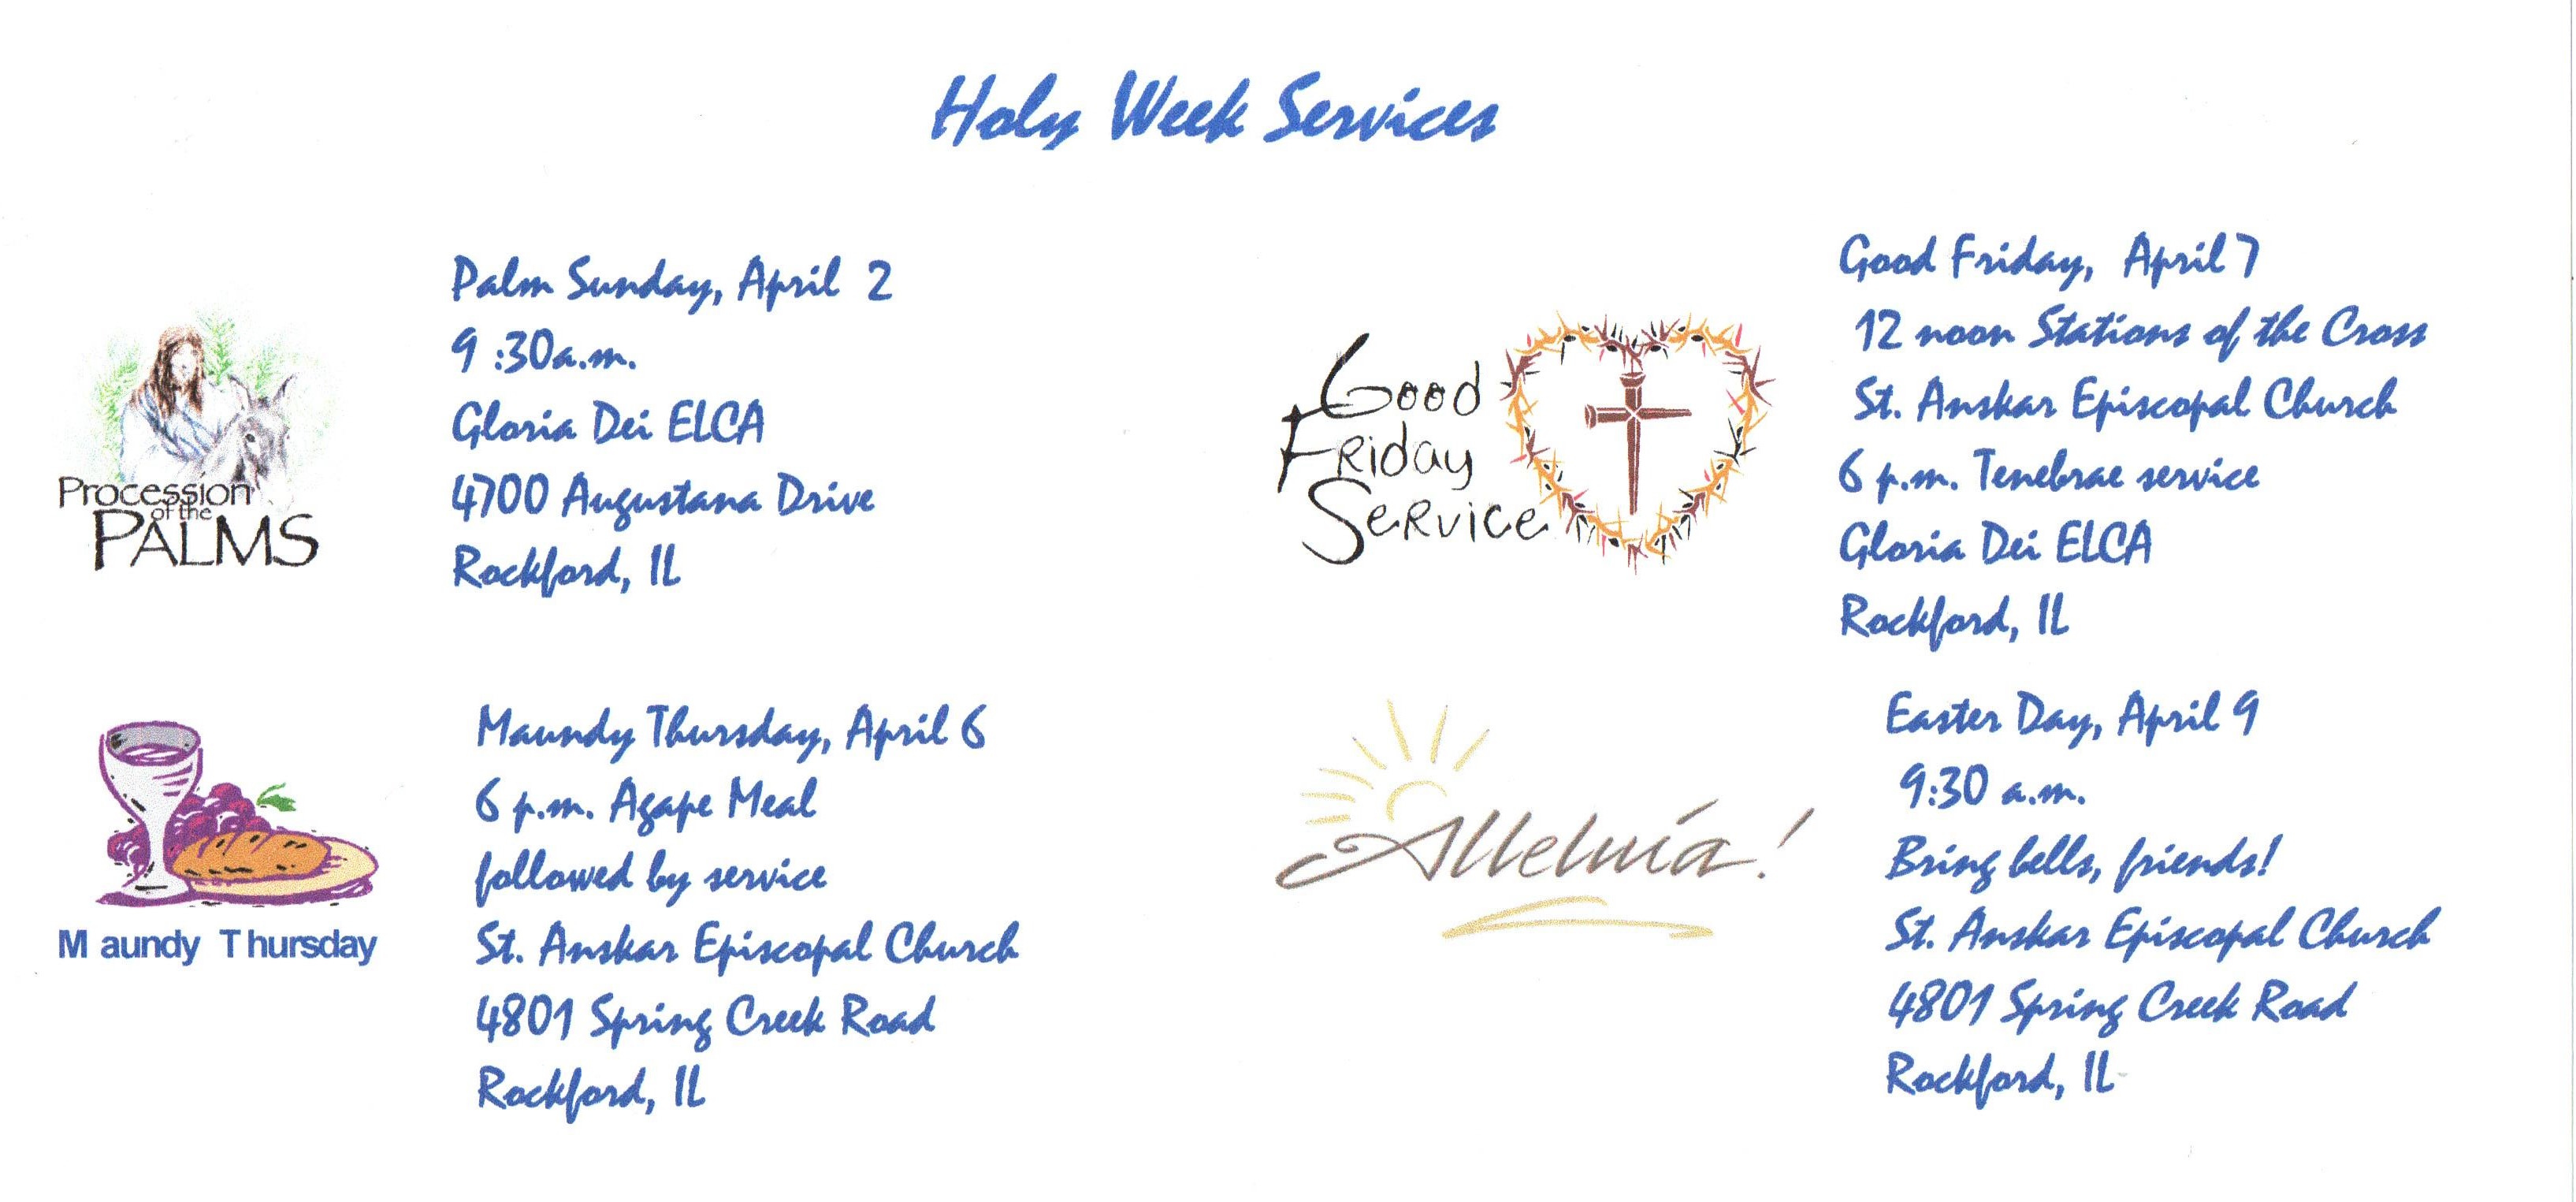 Holy Week Services
Procession
of the
PALMS
Palm Sunday, April 2
9 :30a.m.
Gloria Dei ELCA
4700 Augustana Drive
Rockford, IL
Maundy Thursday
Maundy Thursday, April 6
6 p.m. Agape Meal
followed by service
St. Anskar Episcopal Church
4801 Spring Creek Road
Rockford, IL
Good
Friday
Service
Good Friday, April 7
12 noon Stations of the Cross
St. Anskar Episcopal Church
6 p.m. Tenebrae service
Gloria Dei ELCA
Rockford, IL
Alleluia!
Easter Day, April 9
9:30 a.m.
Bring bells, friends!
St. Anskar Episcopal Church
4801 Spring Creek Road
Rockford, IL